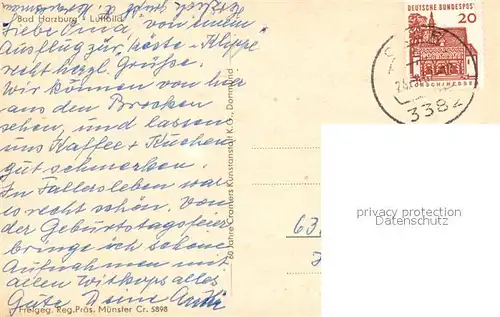 Bad Harzburg Luftbild
Liebe Oma, von einem
Ausflug zur Käste-Klippe
recht herzl. Grüße.
Wir können von hier
aus den Brocken
sehen, und lassen
uns Kaffee + Kuchen
gut schmecken.
In Fallersleben war
es recht schön, von
der Geburtstagsfeier
bringe ich schöne
Aufnahmen mit
allen Witkops alles
Gute Deine
Freigeg. Reg. Präs. Münster Cr. 5898
60 Jahre Cramers Kunstanstalt K.G., Dortmund
DEUTSCHE BUNDESPOST
20
LORSCH/HESSEN
3382
63
privacy protection
Datenschutz